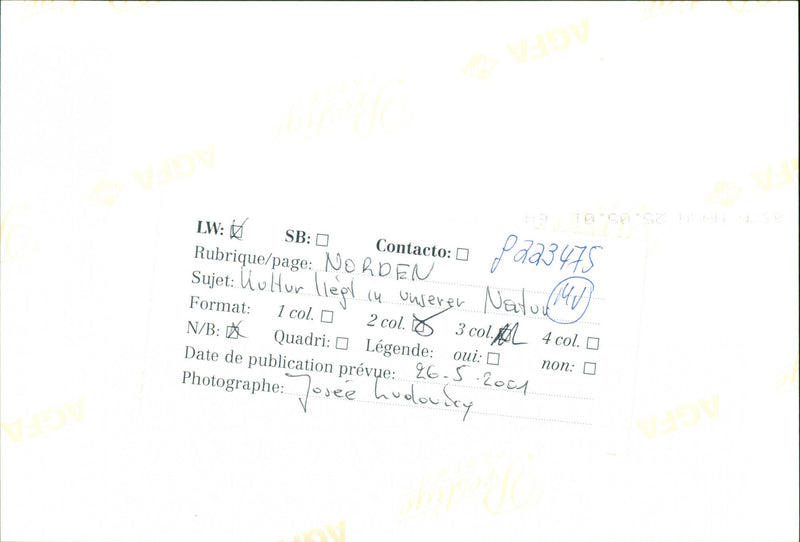 AGFA
Prestige
AGFA
LW: ☒ SB: ☐ Contacto: ☐ p223475
Rubrique/page: NORDEN
Sujet: Kultur liegt in unserer Natur
Format: 1 col. ☐ 2 col. ☒ 3 col. 4 col. ☐
N/B: ☒ Quadri: ☐ Légende: oui: ☐ non: ☐
Date de publication prévue: 26-5-2001
Photographe: Josée Ludovicy
AGFA
AGFA
Prestige
AGFA